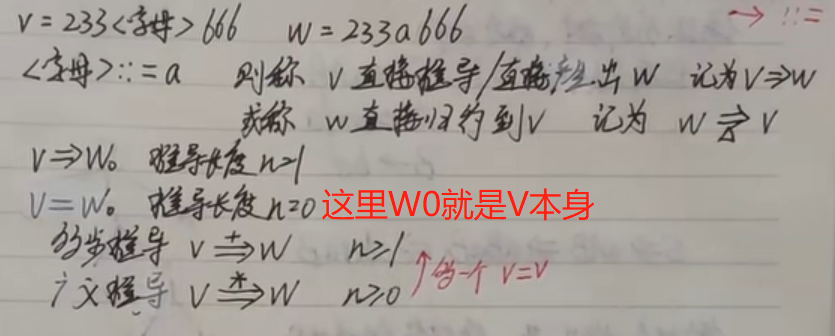 V=233<字母>666 W=233a666 → ::=
<字母>::=a 则称 V直接推导/直接产生出W 记为V⇒W
或称 W直接归约到V 记为 W⇒V
V⇒W。 推导长度n=1
V=W。 推导长度n=0 这里W0就是V本身
多步推导 V⇒+W n≥1
广义推导 V⇒*W n≥0 ↑多一个 V=V